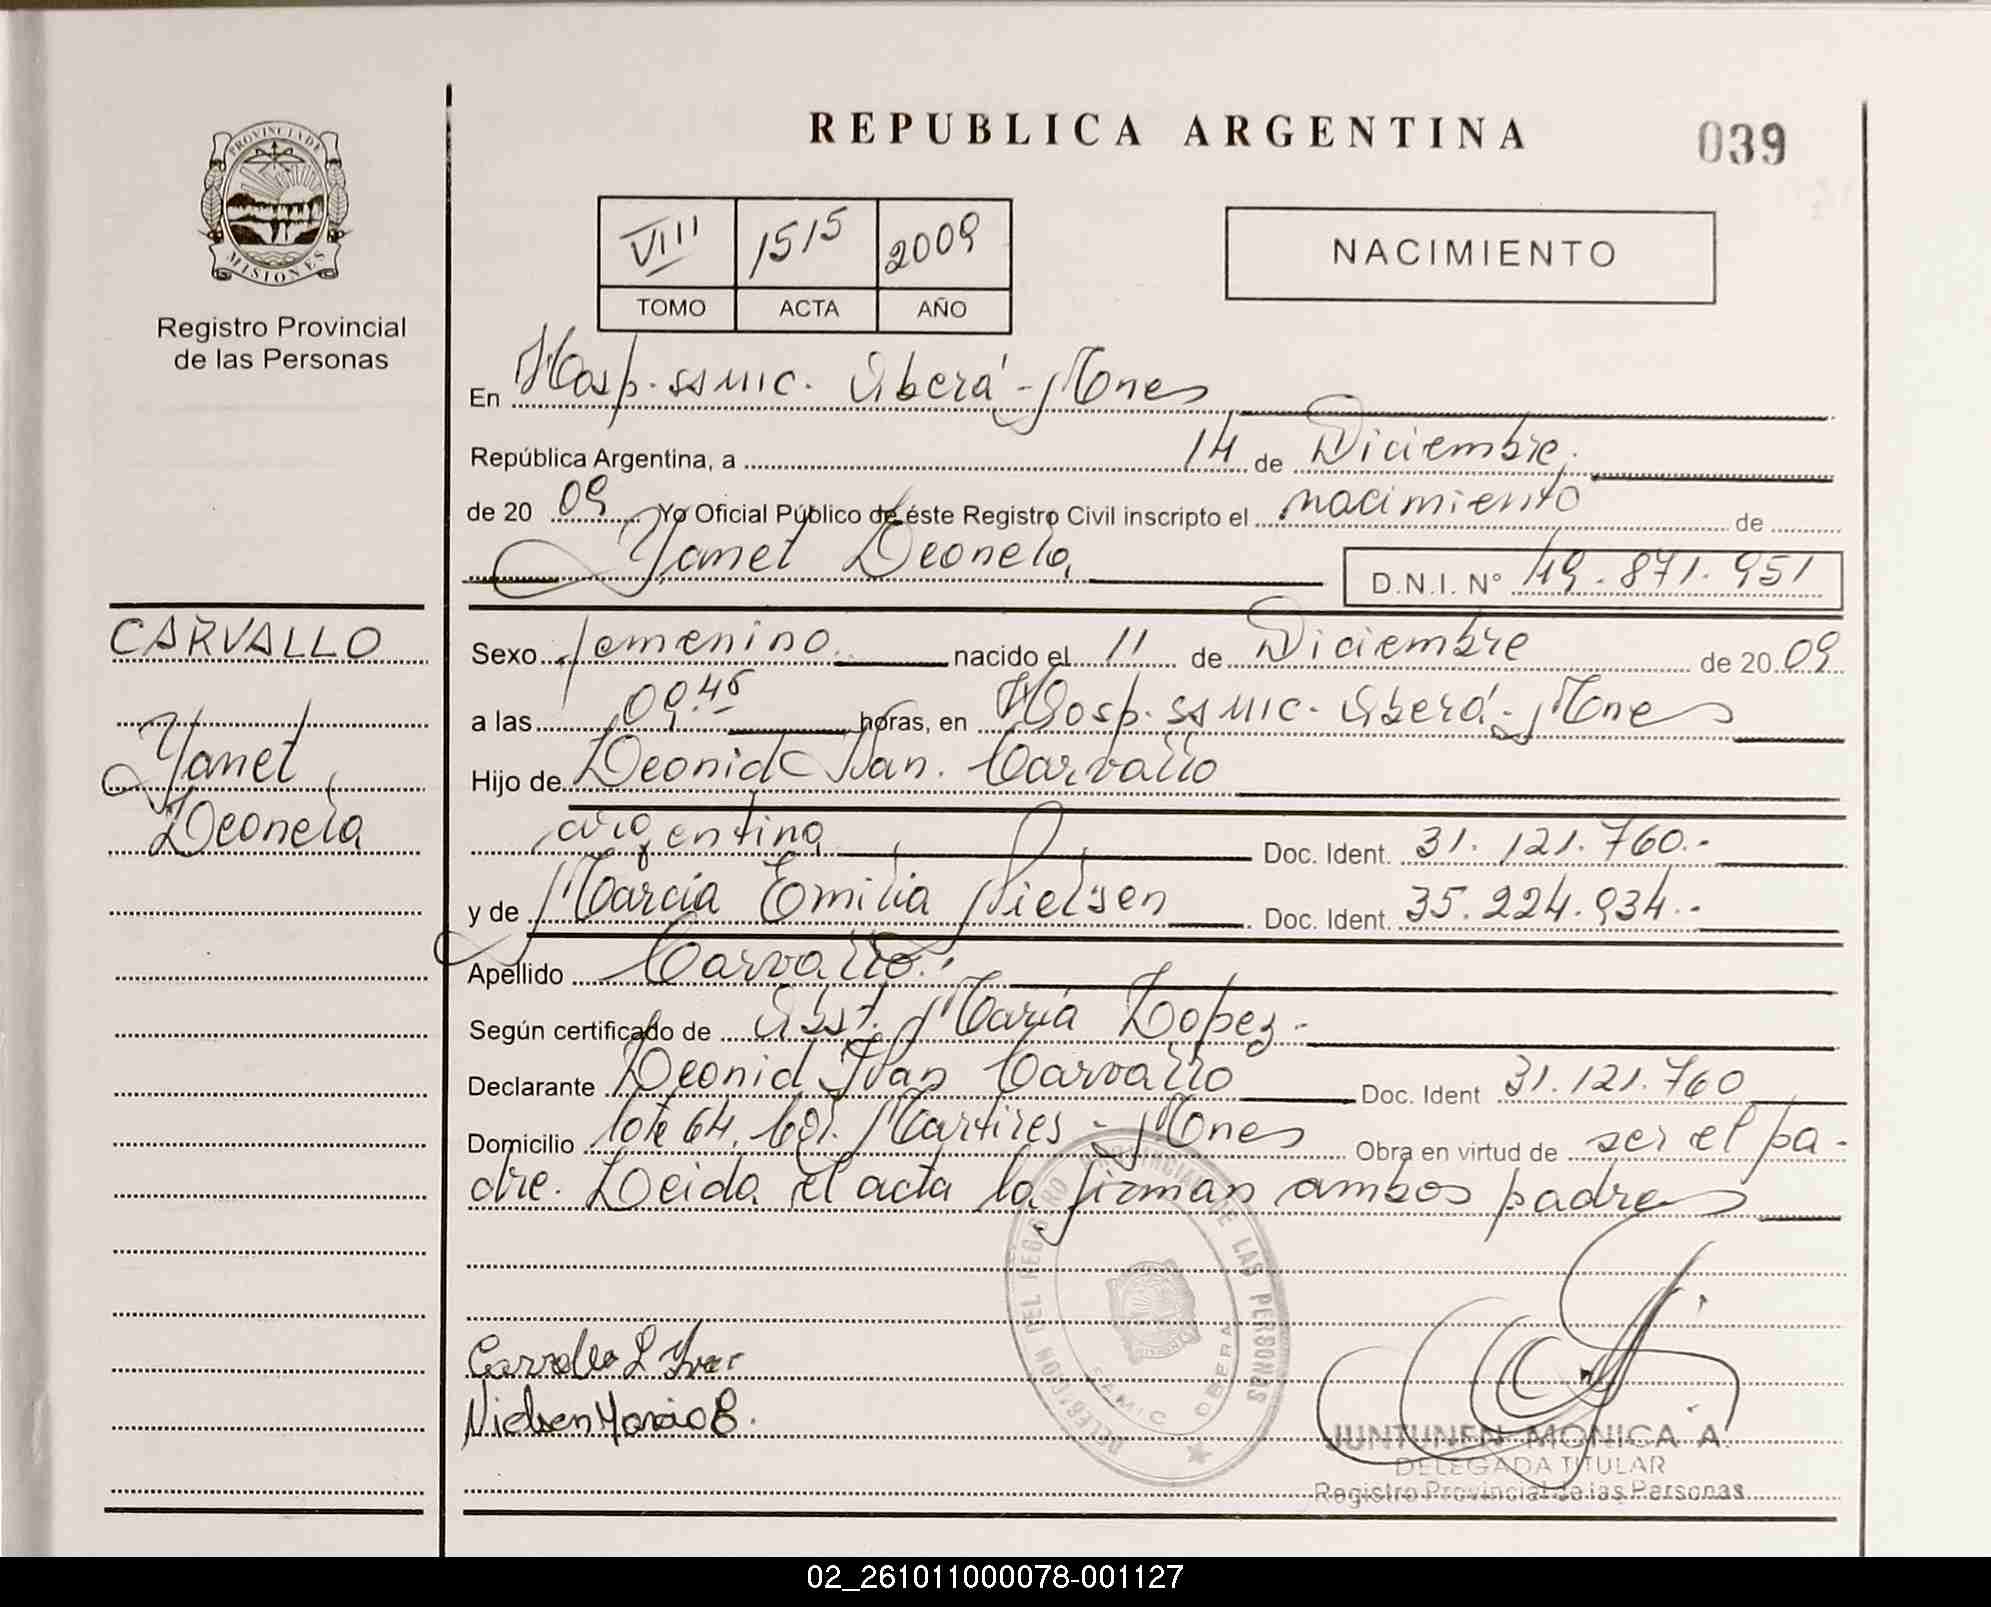 REPUBLICA ARGENTINA
039
PROVINCIA DE
MISIONES
Registro Provincial
de las Personas
VIII 1515 2009
TOMO ACTA AÑO
NACIMIENTO
En Hosp. SAMIC. Oberá - Mnes
República Argentina, a 14 de Diciembre.
de 20 09 Yo Oficial Público de éste Registro Civil inscripto el nacimiento de
Yanet Leonela
D.N.I. N° 49.871.951
CARVALLO
Yanet
Leonela
Sexo femenino nacido el 11 de Diciembre de 20 09
a las 09.45 horas, en Hosp. SAMIC. Oberá - Mnes
Hijo de Leonid Ivan. Carvallo
argentina Doc. Ident. 31.121.760.-
y de Marcia Emilia Nielsen Doc. Ident. 35.224.934.-
Apellido Carvallo.-
Según certificado de Obst. María Lopez.-
Declarante Leonid Ivan Carvallo Doc. Ident 31.121.760
Domicilio lote 64. Col. Martires - Mnes Obra en virtud de ser el pa-
dre. Leida el acta la firman ambos padres
Carvallo L Ivan
Nielsen Marcia E.
DELEGACION DEL REGISTRO PROVINCIAL DE LAS PERSONAS
SAMIC OBERA
JUNTUNEN MONICA A.
DELEGADA TITULAR
Registro Provincial de las Personas
02_261011000078-001127